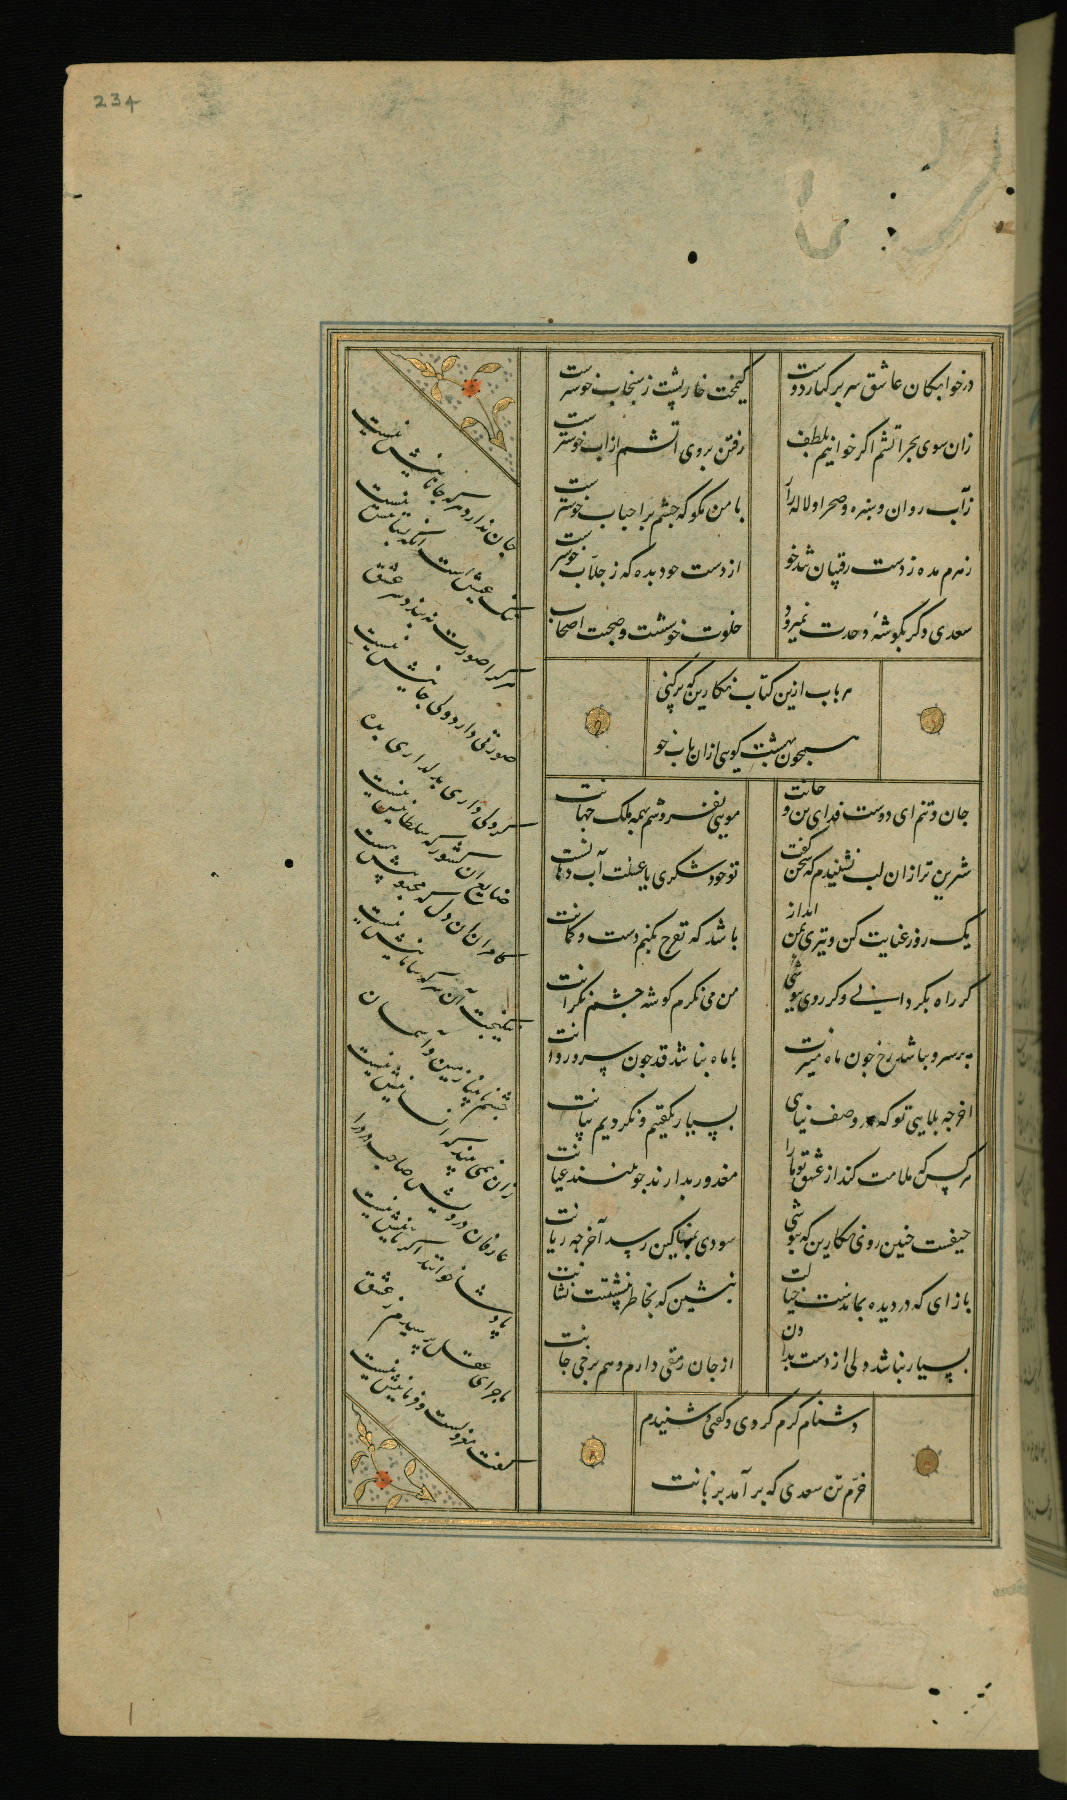 234
در خوابگان عاشق سر بر کنار دوست
کیمخت خارپشت ز سنجاب خوشترست
زان سوی بحر آتشم اگر خوانیم بلطف
رفتن بروی آتشم از آب خوشترست
زآب روان و سبزه و صحرا و لاله زار
با من مگو که چشم بر احباب خوشترست
زهرم مده ز دست رقیبان تندخو
از دست خود بده که ز جلّاب خوشترست
سعدی دگر بگوشهٔ وحدت نمیرود
خلوت خوشست و صحبت اصحاب
هر باب ازین کتاب نگارین که برکنی
همچون بهشت گویی ازان باب خو
جان و تنم ای دوست فدای تن و جانت
مویی نفروشم بهمه ملک جهانت
شیرین تر ازان لب نشنیدم که سخن گفت
تو خود شکری یا عسلت آب دهانت
یک روز عنایت کن و تیری بمن انداز
باشد که تفرج بکنم دست و کمانت
گر راه بگردانی و گر روی بپوشی
من می نگرم گوشه چشم نگرانت
بر سرو نباشد رخ چون ماه منیرت
با ماه نباشد قد چون سرو روانت
آخر چه بلایی تو که در وصف نیایی
بسیار بگفتیم و نکردیم بیانت
هر کس که ملامت کند از عشق تو ما را
معذور بدارند چو بینند عیانت
حیفست چنین روی نگارین که بپوشی
سودی بمساکین رسد آخر چه زیانت
بازآی که در دیده بماندست خیالت
بنشین که بخاطر بنشستست نشانت
بسیار نباشد دلی از دست بدادن
از جان رمقی دارم و هم برخی جانت
دشنام کرم کردی و گفتی و شنیدم
خرّم تن سعدی که برآمد بزبانت
جان ندارد هر که جانانیش نیست
تنگ عیش است آنکه بستانیش نیست
هر کرا صورت نبندد سر عشق
صورتی دارد ولی جانیش نیست
گر دلی داری بدلداری بده
ضایع آن کشور که سلطانیش نیست
کامران آن دل که محبوبیش هست
نیکبخت آن سر که سامانیش نیست
چشم نابینا زمین و آسمان
زان نمی بیند که انسانیش نیست
عارفان درویش صاحب درد را
پادشا خوانند اگر نانیش نیست
ماجرای عقل پرسیدم ز عشق
گفت معزولست و فرمانیش نیست